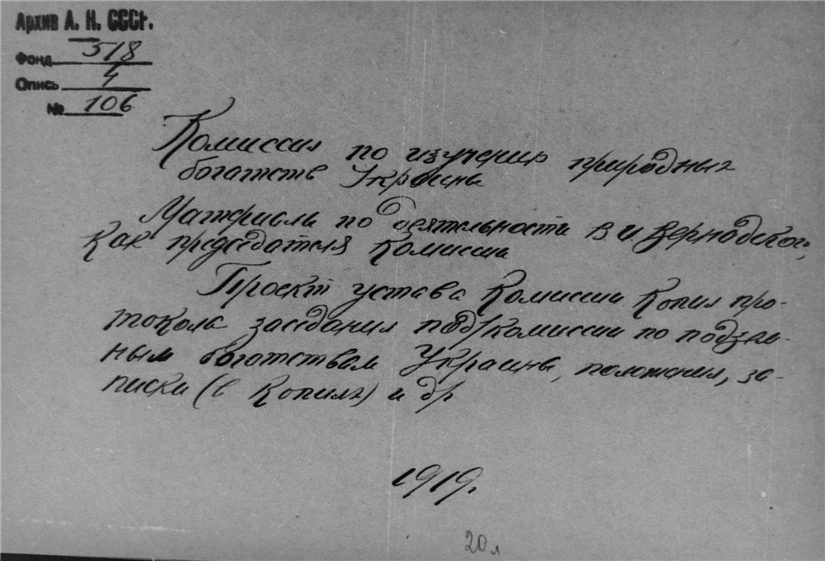 Архив А. Н. СССР.
Фонд 518
Опись 4
№ 106
Комиссия по изучению природных
богатств Украины
Материалы по деятельности В И Вернадского,
как председателя Комиссии
Проект устава Комиссии Копия про-
токола заседания под/комиссии по подзем-
ным богатствам Украины, положения, за-
писки (в копиях) и др
1919.
20 л